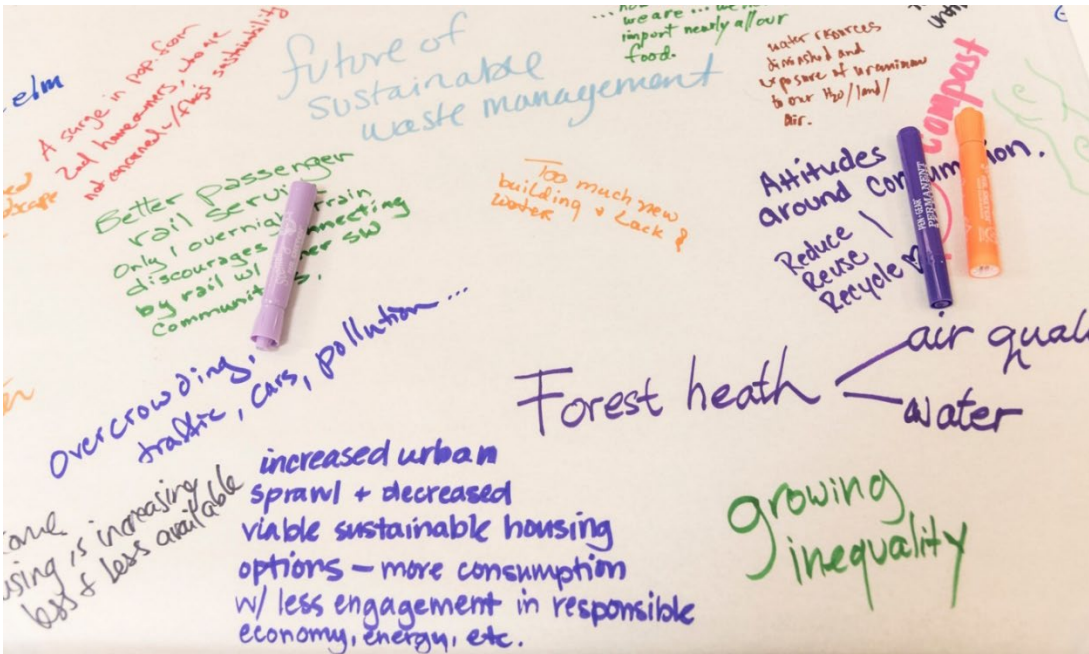 elm
A surge in pop. from
2nd homeowners, who are
not concerned w/ flag's sustainability
future of
sustainable
waste management
we are
import nearly all our
food.
water resources
diminished and
exposure of uranium
to our H2O/land/
air.
compost
Better passenger
rail
Only 1 overnight train
discourages connecting
by rail w/ SW
Too much new
building & Lack of
water
Attitudes
around consumption.
Reduce
Reuse
Recycle
Overcrowding,
traffic, cars, pollution...
Forest heath
air
water
is increasing
less & less available
increased urban
sprawl + decreased
viable sustainable housing
options — more consumption
w/ less engagement in responsible
economy, energy, etc.
growing
inequality
PERMANENT